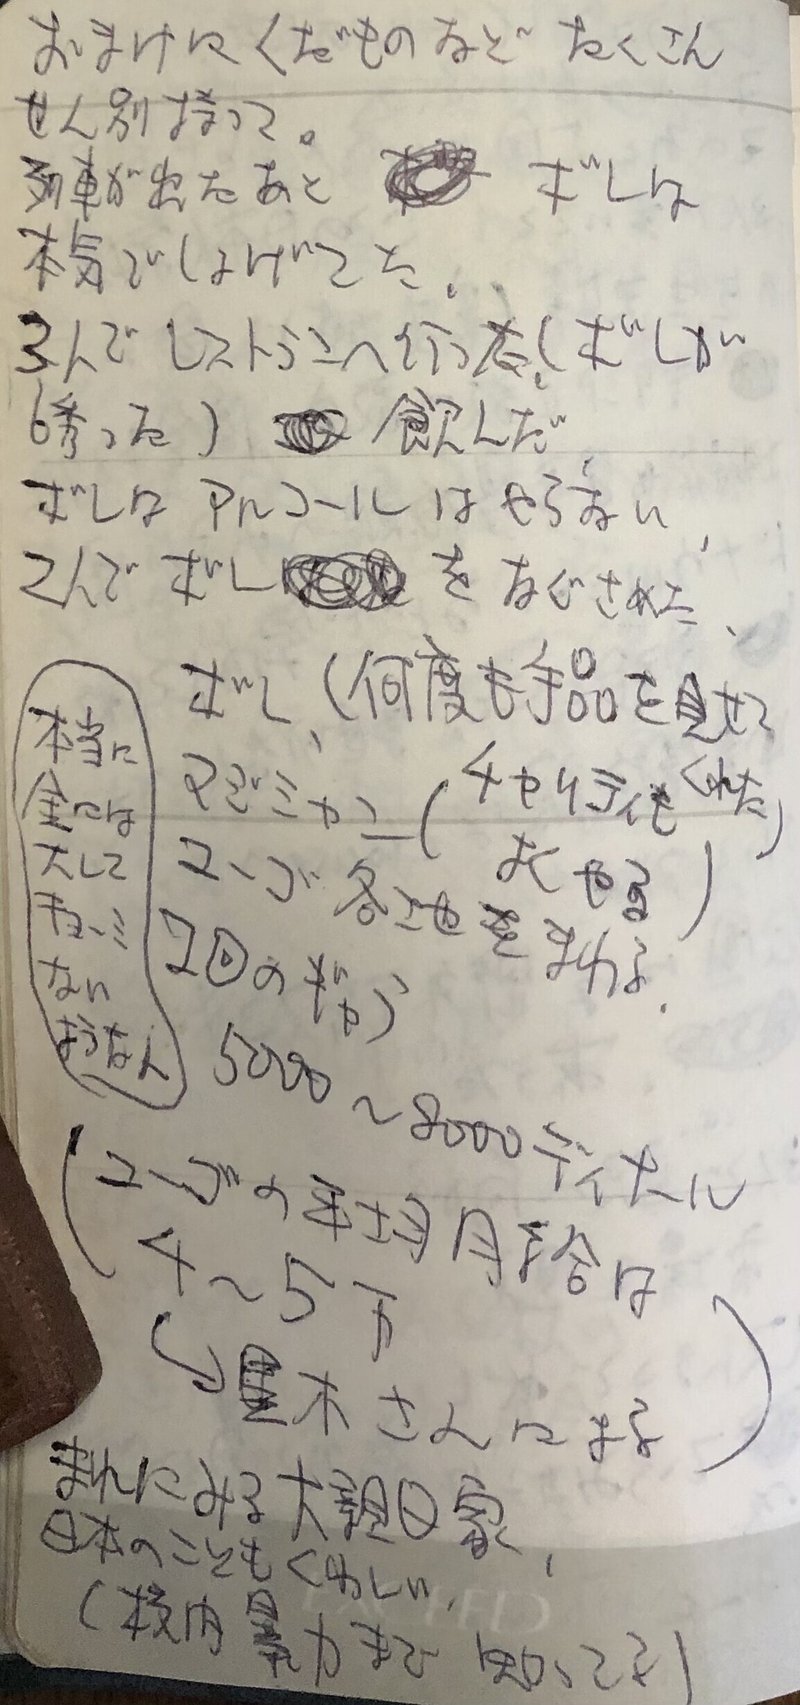 おまけにくだものなどたくさん
せん別持って。
列車が出たあと ボレは
本気でしょげてた。
3人でレストランへ行った。(ボレが
誘った) 飲んだ。
ボレはアルコールはやらない。
2人でボレをなぐさめた。
ボレ、(何度も手品を見せて
くれた)
マジシャン(チャリティも
よくやる)
ユーゴ各地をまわる。
本当に
金には
大して
キョーミ
ない
ようなん
1回のギャラ
5000〜8000ディナール
(ユーゴの平均月給は
4〜5万
黒木さんによる)
まれにみる大親日家、
日本のこともくわしい。
(校内暴力まで知ってる)